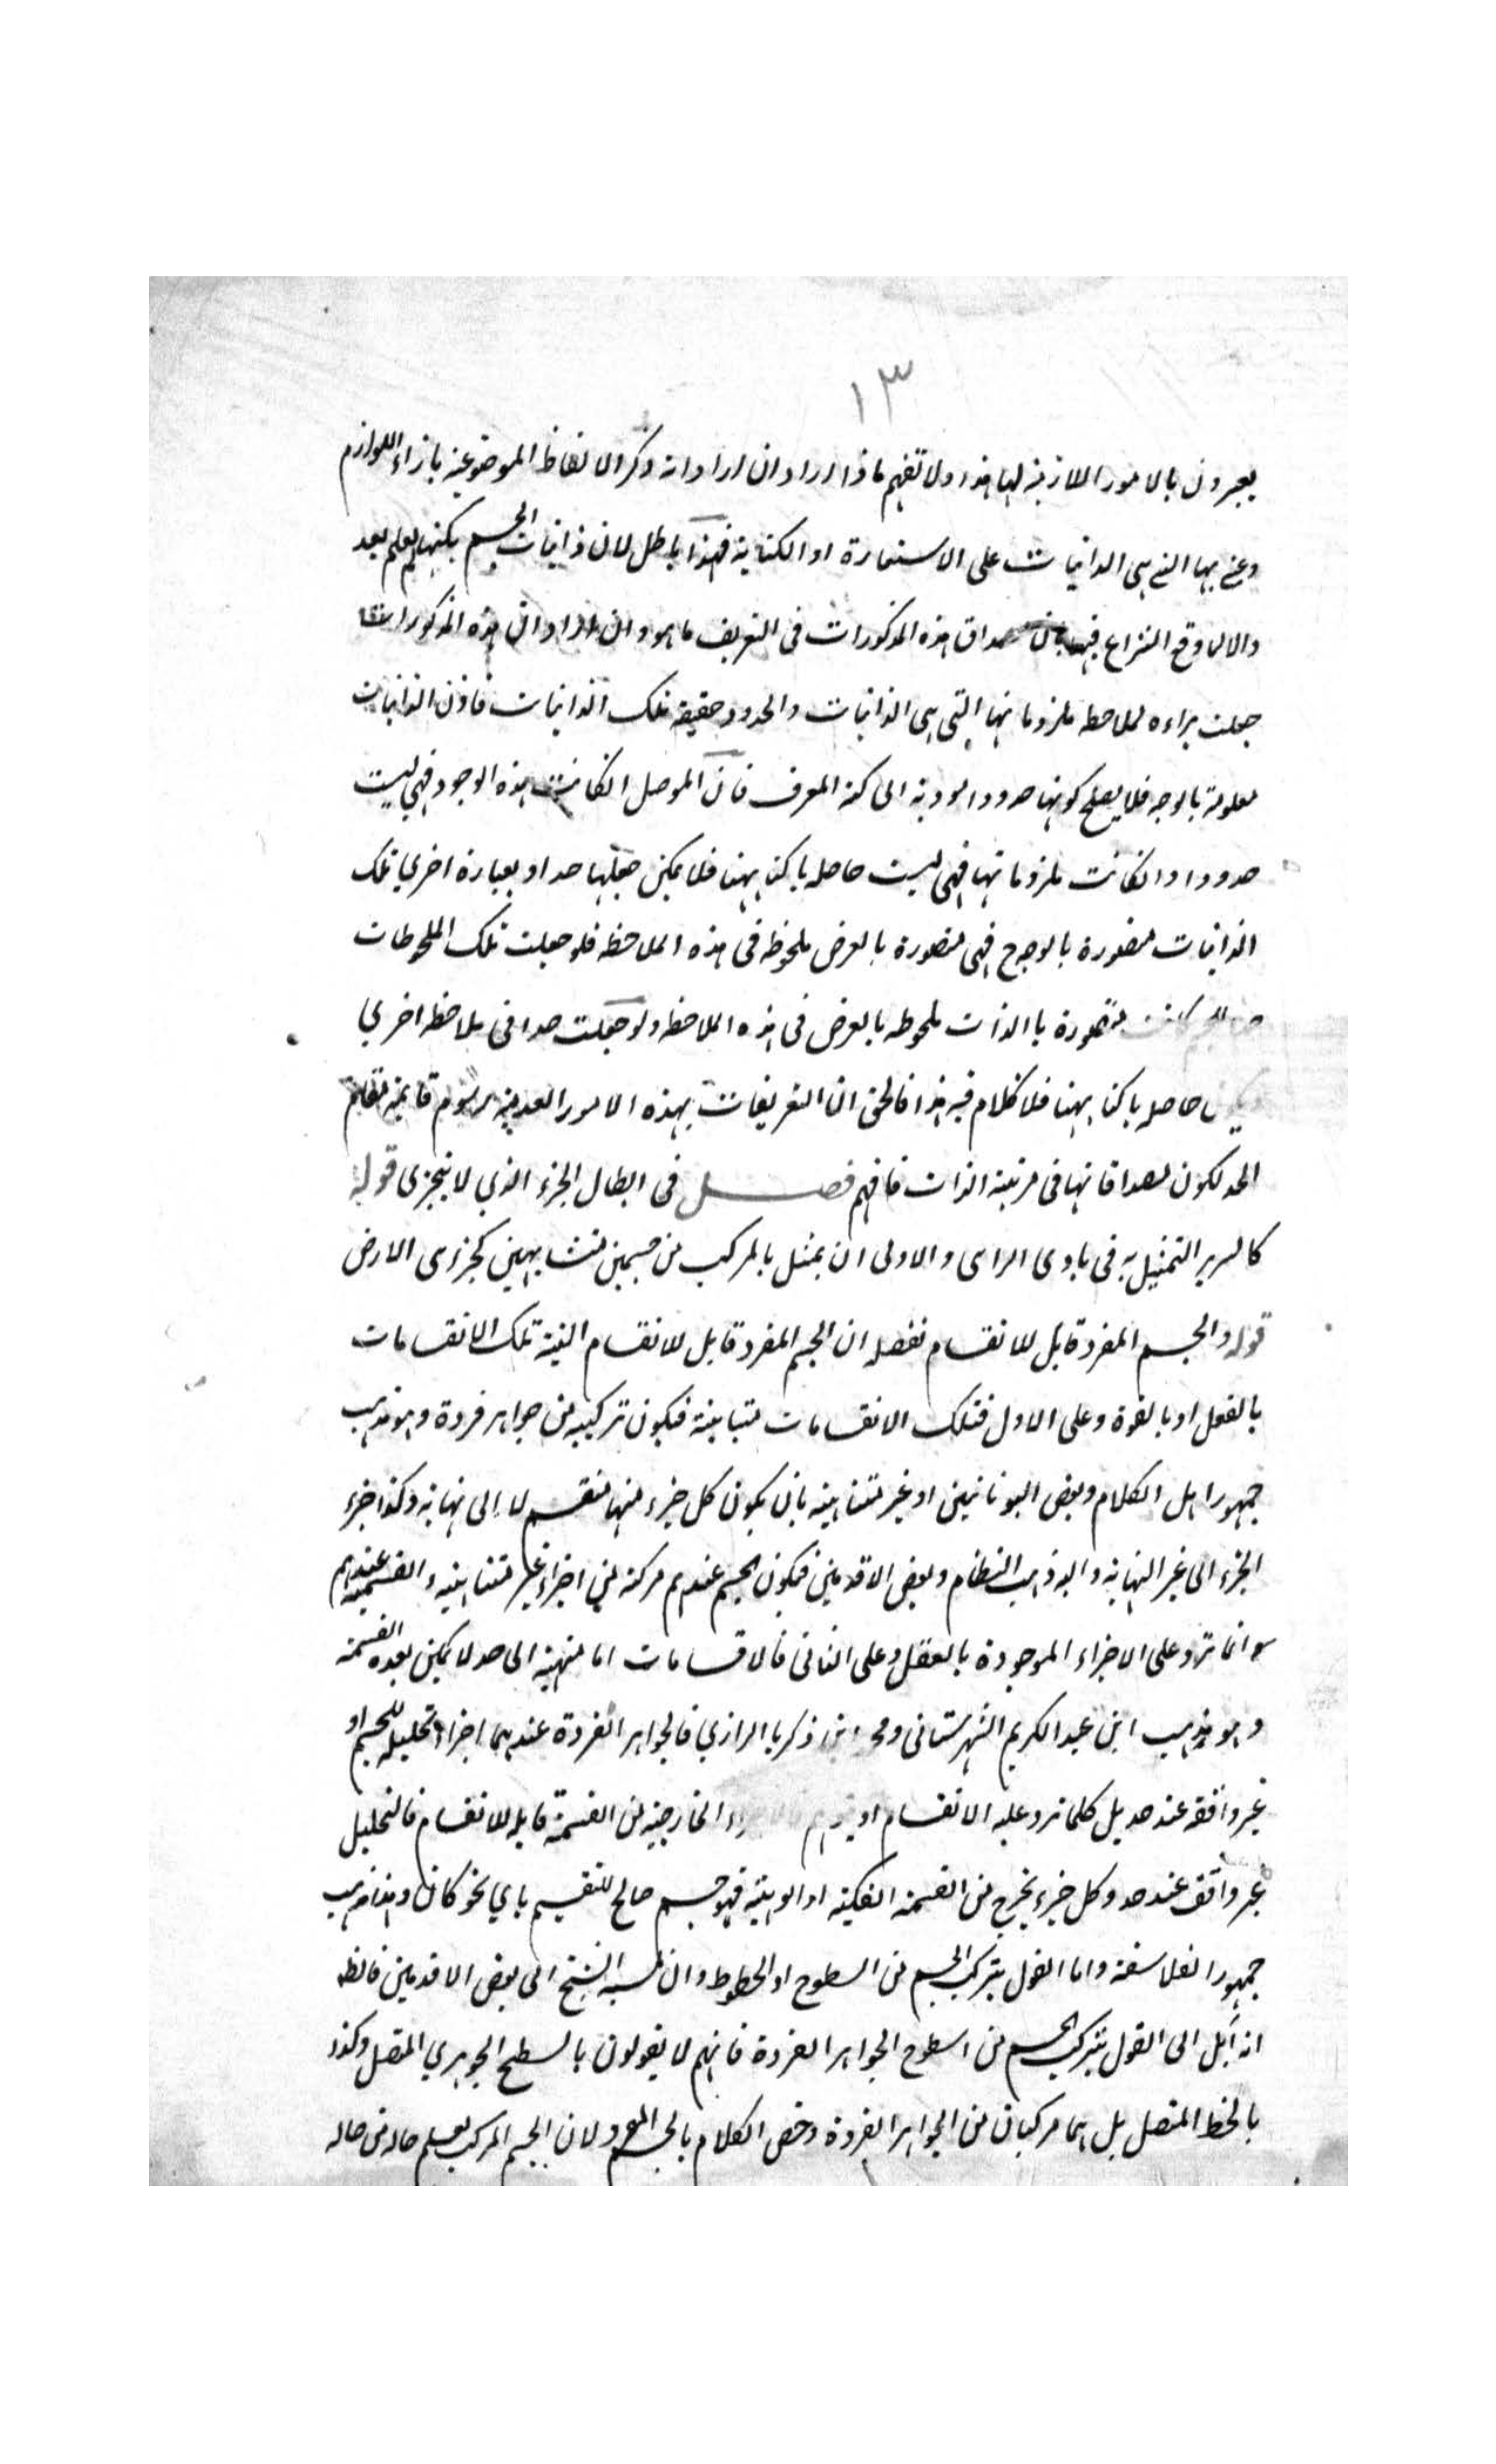 ١٣
يعبرون بالامور اللازمة لها هذا ولا تفهم ماذا اراد ان اراد انه ذكر الالفاظ الموضوعة بازاء اللوازم
وعنى بها التي هي الذاتيات على الاستعارة او الكناية فهذا باطل لان ذاتيات الجسم بكنهها لم يعلم بعد
والا لما وقع النزاع فيها بان مصداق هذه المذكورات في التعريف ما هو وان اراد ان هذه المذكورات
جعلت مراءة لملاحظه ملزوماتها التي هي الذاتيات والحدود حقيقة تلك الذاتيات فاذن الذاتيات
معلومة بالوجه فلا يصلح كونها حدودا مودية الى كنه المعرف فان الموصل ان كانت هذه الوجود فهي ليست
حدودا وان كانت ملزوماتها فهي ليست حاصله باكناهها فلا يمكن جعلها حدا وبعبارة اخرى تلك
الذاتيات متصورة بالوجه ح فهي متصورة بالعرض ملحوظه في هذه الملاحظه فلو جعلت تلك الملحوظات
كانت متصورة باالذات ملحوظه بالعرض في هذه الملاحظه ولو جعلت حدا في ملاحظه اخرى
حاصله باكناهها فلا كلام فيه هذا فالحق ان التعريفات بهذه الامور العدمية رسوم قايمة مقام
الحد لكون مصداقاتها في مرتبة الذات فافهم فصل في ابطال الجزء الذي لا يتجزى قوله
كالسرير التمثيل به في بادى الراى والاولى ان يمثل بالمركب من جسمين متشابهين كجزءى الارض
قوله والجسم المفرد قابل للانقسام تفصله ان الجسم المفرد قابل للانقسام البتة تلك الانقسامات
بالفعل او بالقوة وعلى الاول فتلك الانقسامات متباينة فيكون تركيبه من جواهر فردة وهو مذهب
جمهور اهل الكلام وبعض اليونانيين او غير متناهيه بان يكون كل جزء منها منقسم لا الى نهاية وكذا جزء
الجزء الى غير النهاية واليه ذهب النظام وبعض الاقدمين فيكون الجسم عندهم مركبه من اجزاء غير متناهيه و القسمة عندهم
انما ترد على الاجزاء الموجودة بالفعل وعلى الثانى فالاقسامات اما منهية الى حد لا يمكن بعده القسمة
وهو مذهب ابن عبد الكريم الشهرستانى ومحمد ابن ذكريا الرازي فالجواهر الفردة عندهما اجزاء تحليله للجسم او
غير واقفه عند حد بل كلما ترد عليه الانقسام الخارجية من القسمة قابله للانقسام فالتحليل
غير واقف عند حد وكل جزء يخرج من القسمة الفكية او الوهية فهو جسم صالح للتقسيم باي نحو كان وهذا مذهب
جمهور الفلاسفة واما القول بتركب الجسم من السطوح او الخطوط وان نسبه الشيخ الى بعض الاقدمين فالظ
انه آيل الى القول بتركب الجسم من اسطوح الجواهر الفردة فانهم لا يقولون بالسطح الجوهري المتصل وكذا
بالخط المتصل بل هما مركبان من الجواهر الفردة وخص الكلام بالجسم المفرد لان الجسم المركب يعلم حاله من حاله